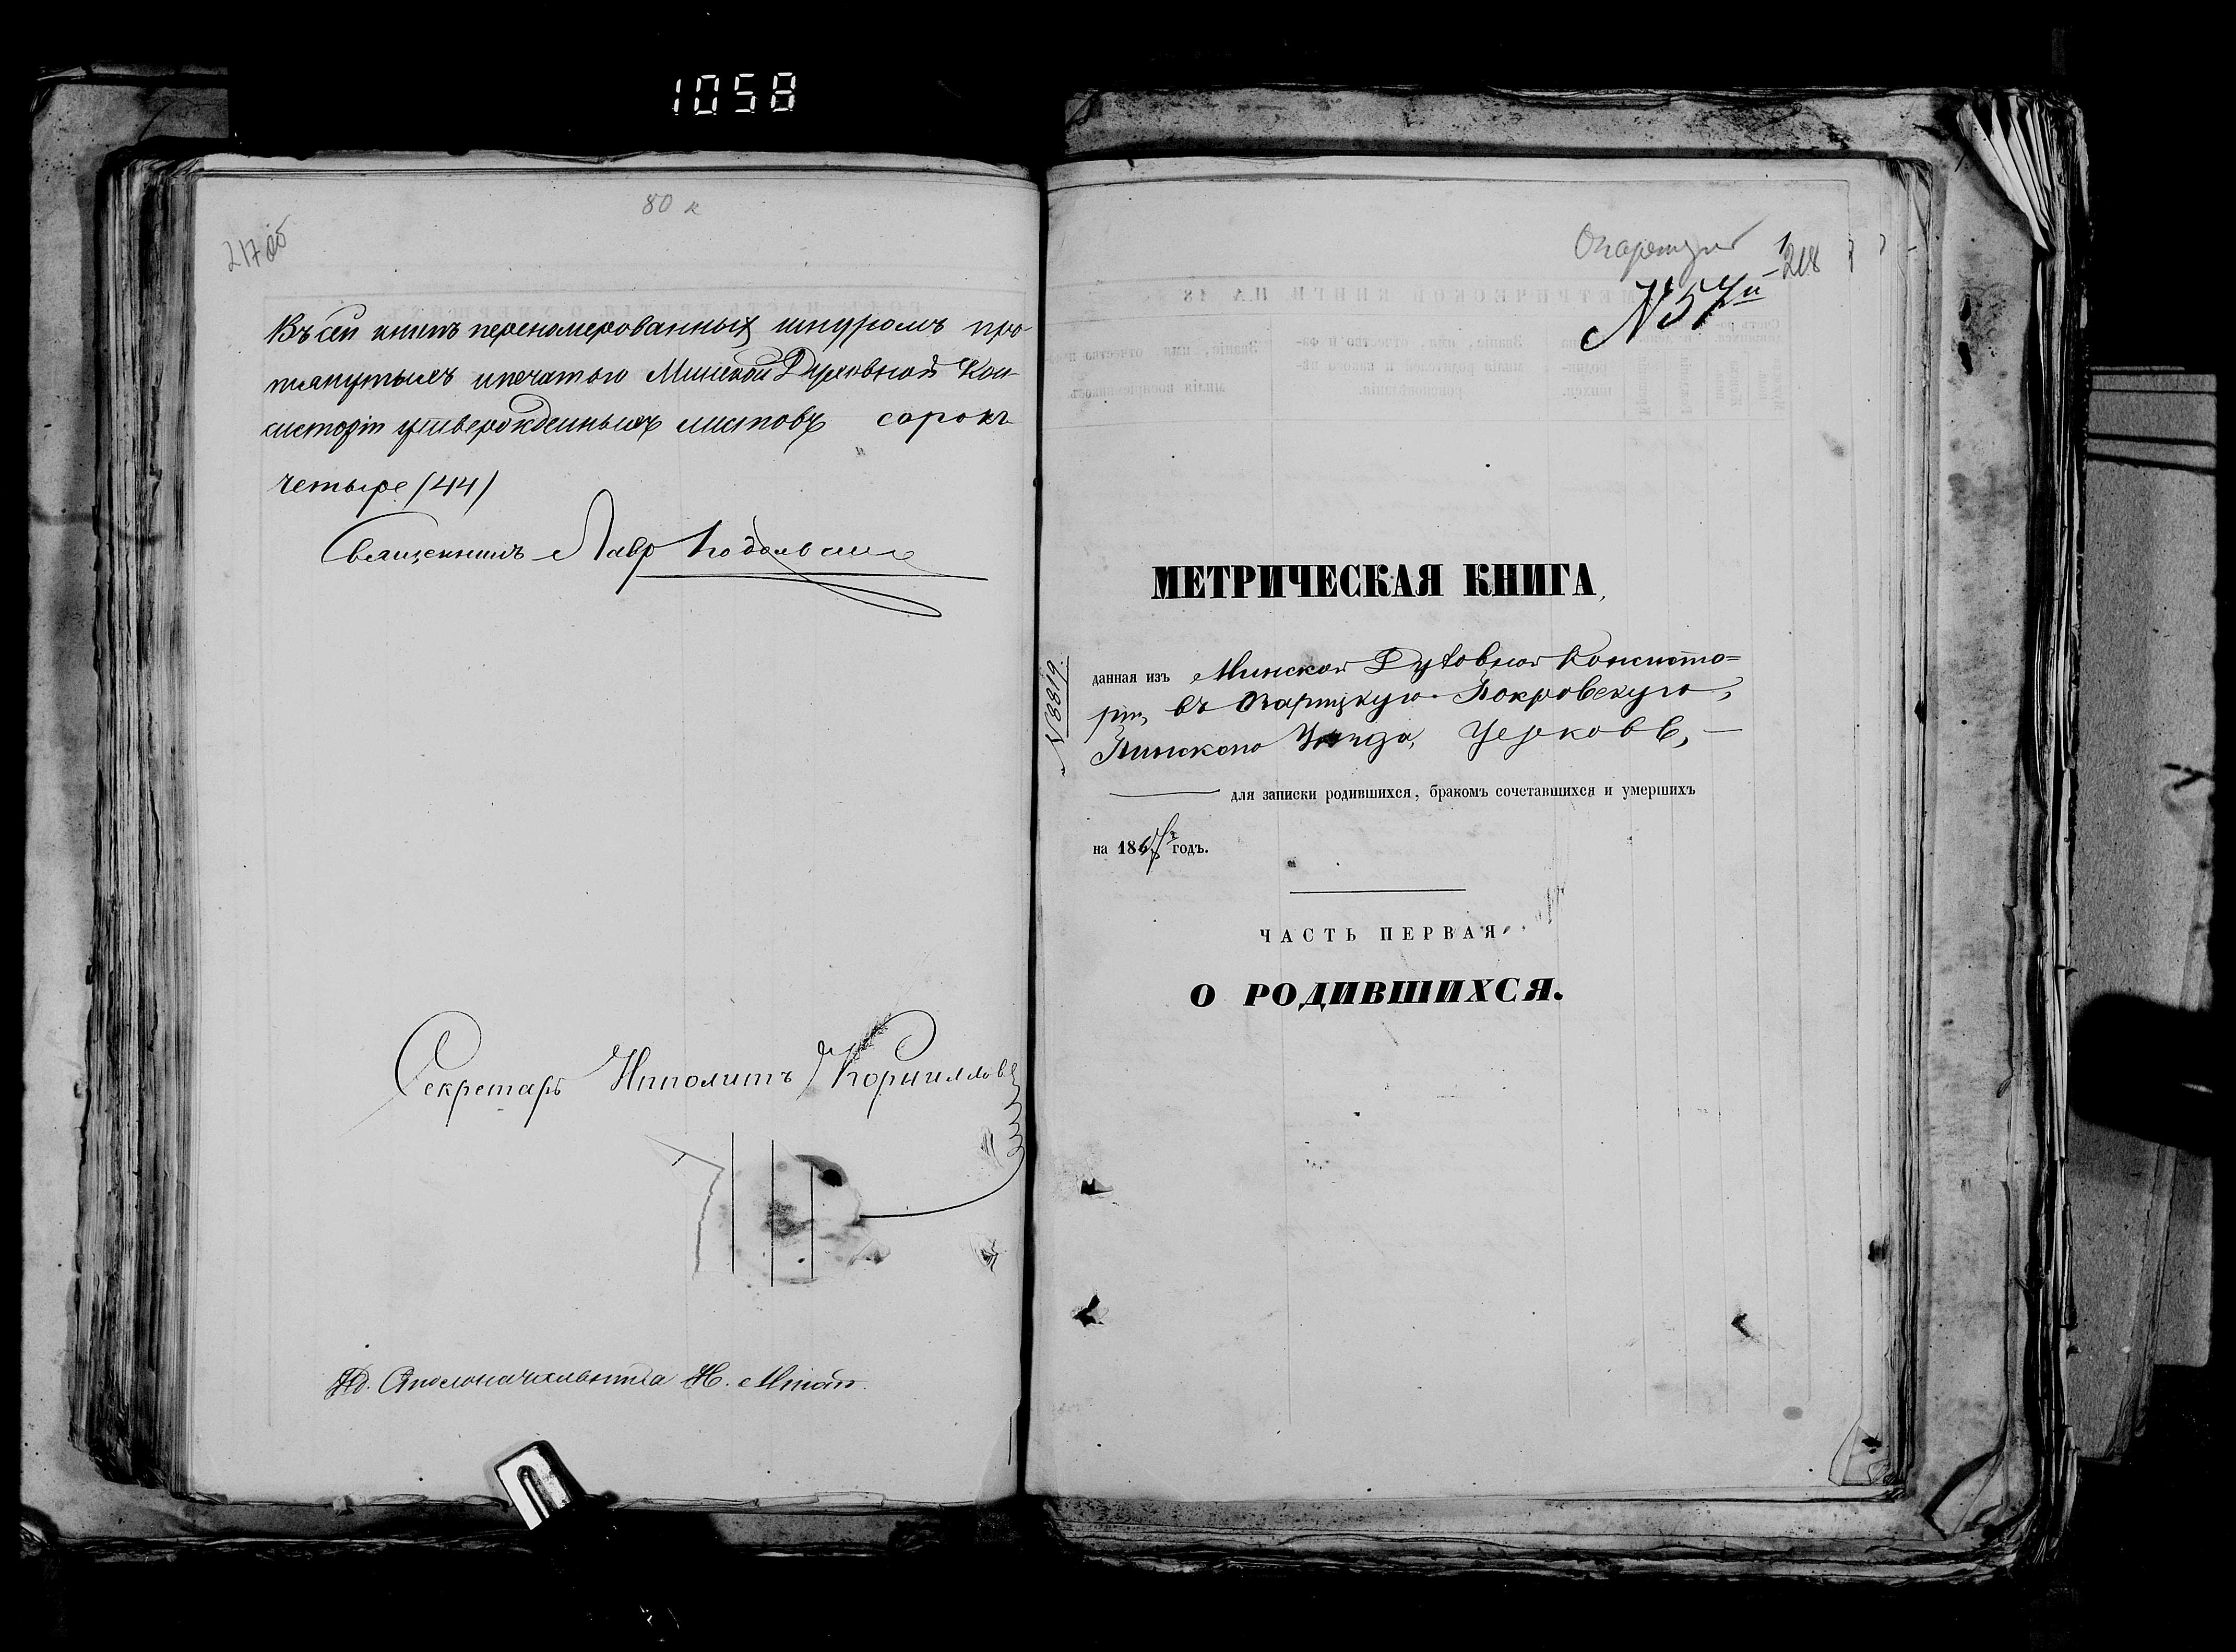 1058
80 к
217об
Въ сей книгѣ перенумерованныхъ шнуромъ про-
тянутыхъ и печатью Минской Духовной Кон-
систоріи утвержденныхъ листовъ сорокъ
четыре /44/
Священникъ Лавр
Секретарь Ипполитъ Корниловъ
Столоначальника Н.
218
N 57й
МЕТРИЧЕСКАЯ КНИГА,
N 8819
данная изъ Минской Духовной Консисто=
ріи, въ Опарицкую Покровскую,
Пинскаго Уѣзда, Церковь, —
для записки родившихся, бракомъ сочетавшихся и умершихъ
на 186 годъ.
ЧАСТЬ ПЕРВАЯ
О РОДИВШИХСЯ.